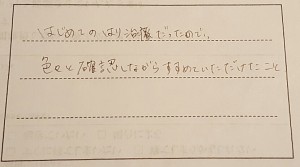 はじめてのはり治療だったので、
色々と確認しながらすすめていただけたこと